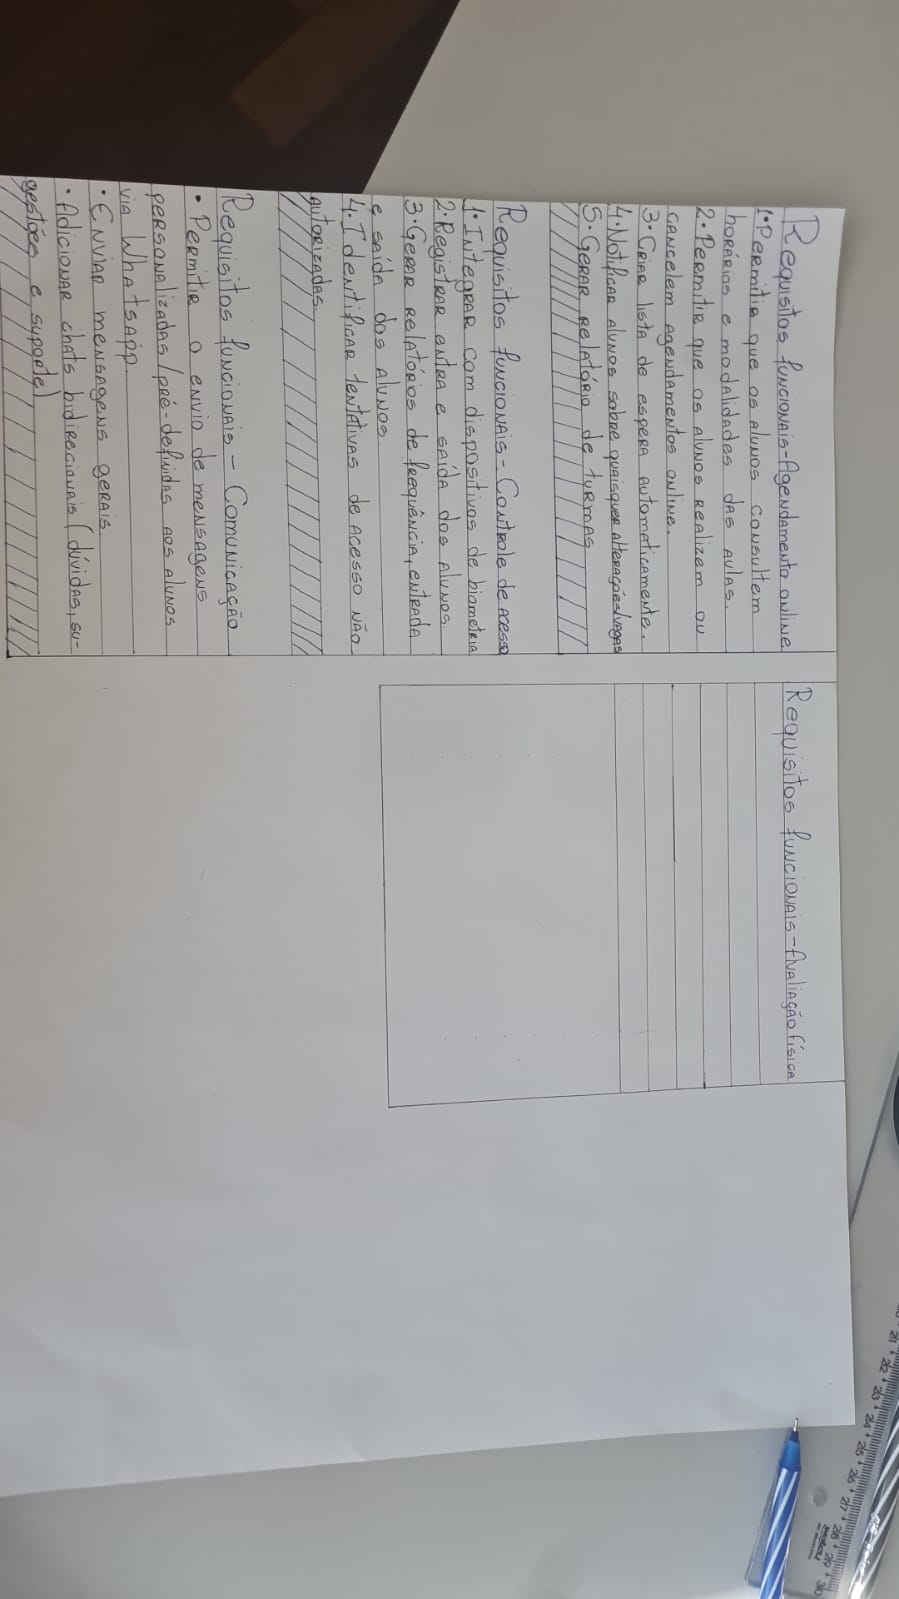 Requisitos funcionais-Agendamento online
1•Permitir que os alunos consultem
horários e modalidades das aulas.
2•Permitir que os alunos realizem ou
cancelem agendamentos online.
3•Criar lista de espera automaticamente.
4•Notificar alunos sobre quaisquer alterações/vagas
5•Gerar relatório de turmas
Requisitos funcionais-Controle de acesso
1•Integrar com dispositivos de biometria
2•Registrar entra e saída dos alunos.
3•Gerar relatórios de frequência, entrada
e saída dos alunos.
4.Identificar tentativas de acesso não
autorizadas.
Requisitos funcionais - Comunicação
• Permitir o envio de mensagens
personalizadas/pré-definidas aos alunos
via WhatsApp.
• Enviar mensagens gerais.
• Adicionar chats bidirecionais (dúvidas, su-
gestões e suporte)
Requisitos funcionais-Avaliação física
21 22 23 24 25 26 27 28 29 30